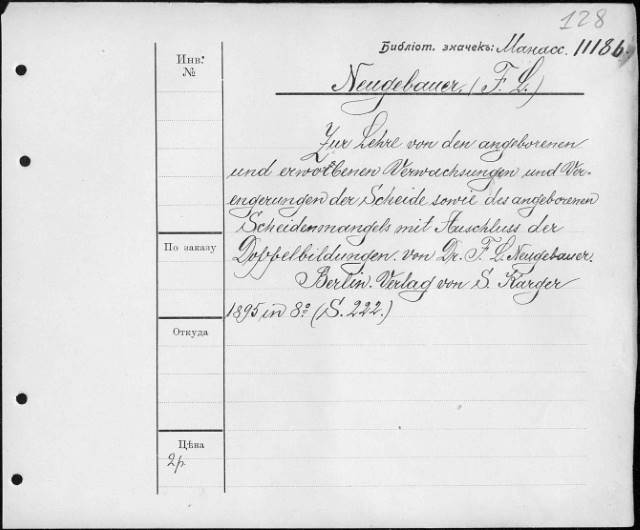 128
Библіот. значекъ: Манасс. 11186.
Инв. №
Neugebauer. (F. L.)
Zur Lehre von den angeborenen
und erworbenen Verwachsungen und Ver-
engerungen der Scheide sowie des angeborenen
Scheidenmangels mit Auschluss der
По заказу
Doppelbildungen. von Dr. F. L. Neugebauer.
Berlin. Verlag von S. Karger
1895 in 8º (S. 222.)
Откуда
Цѣна
2р